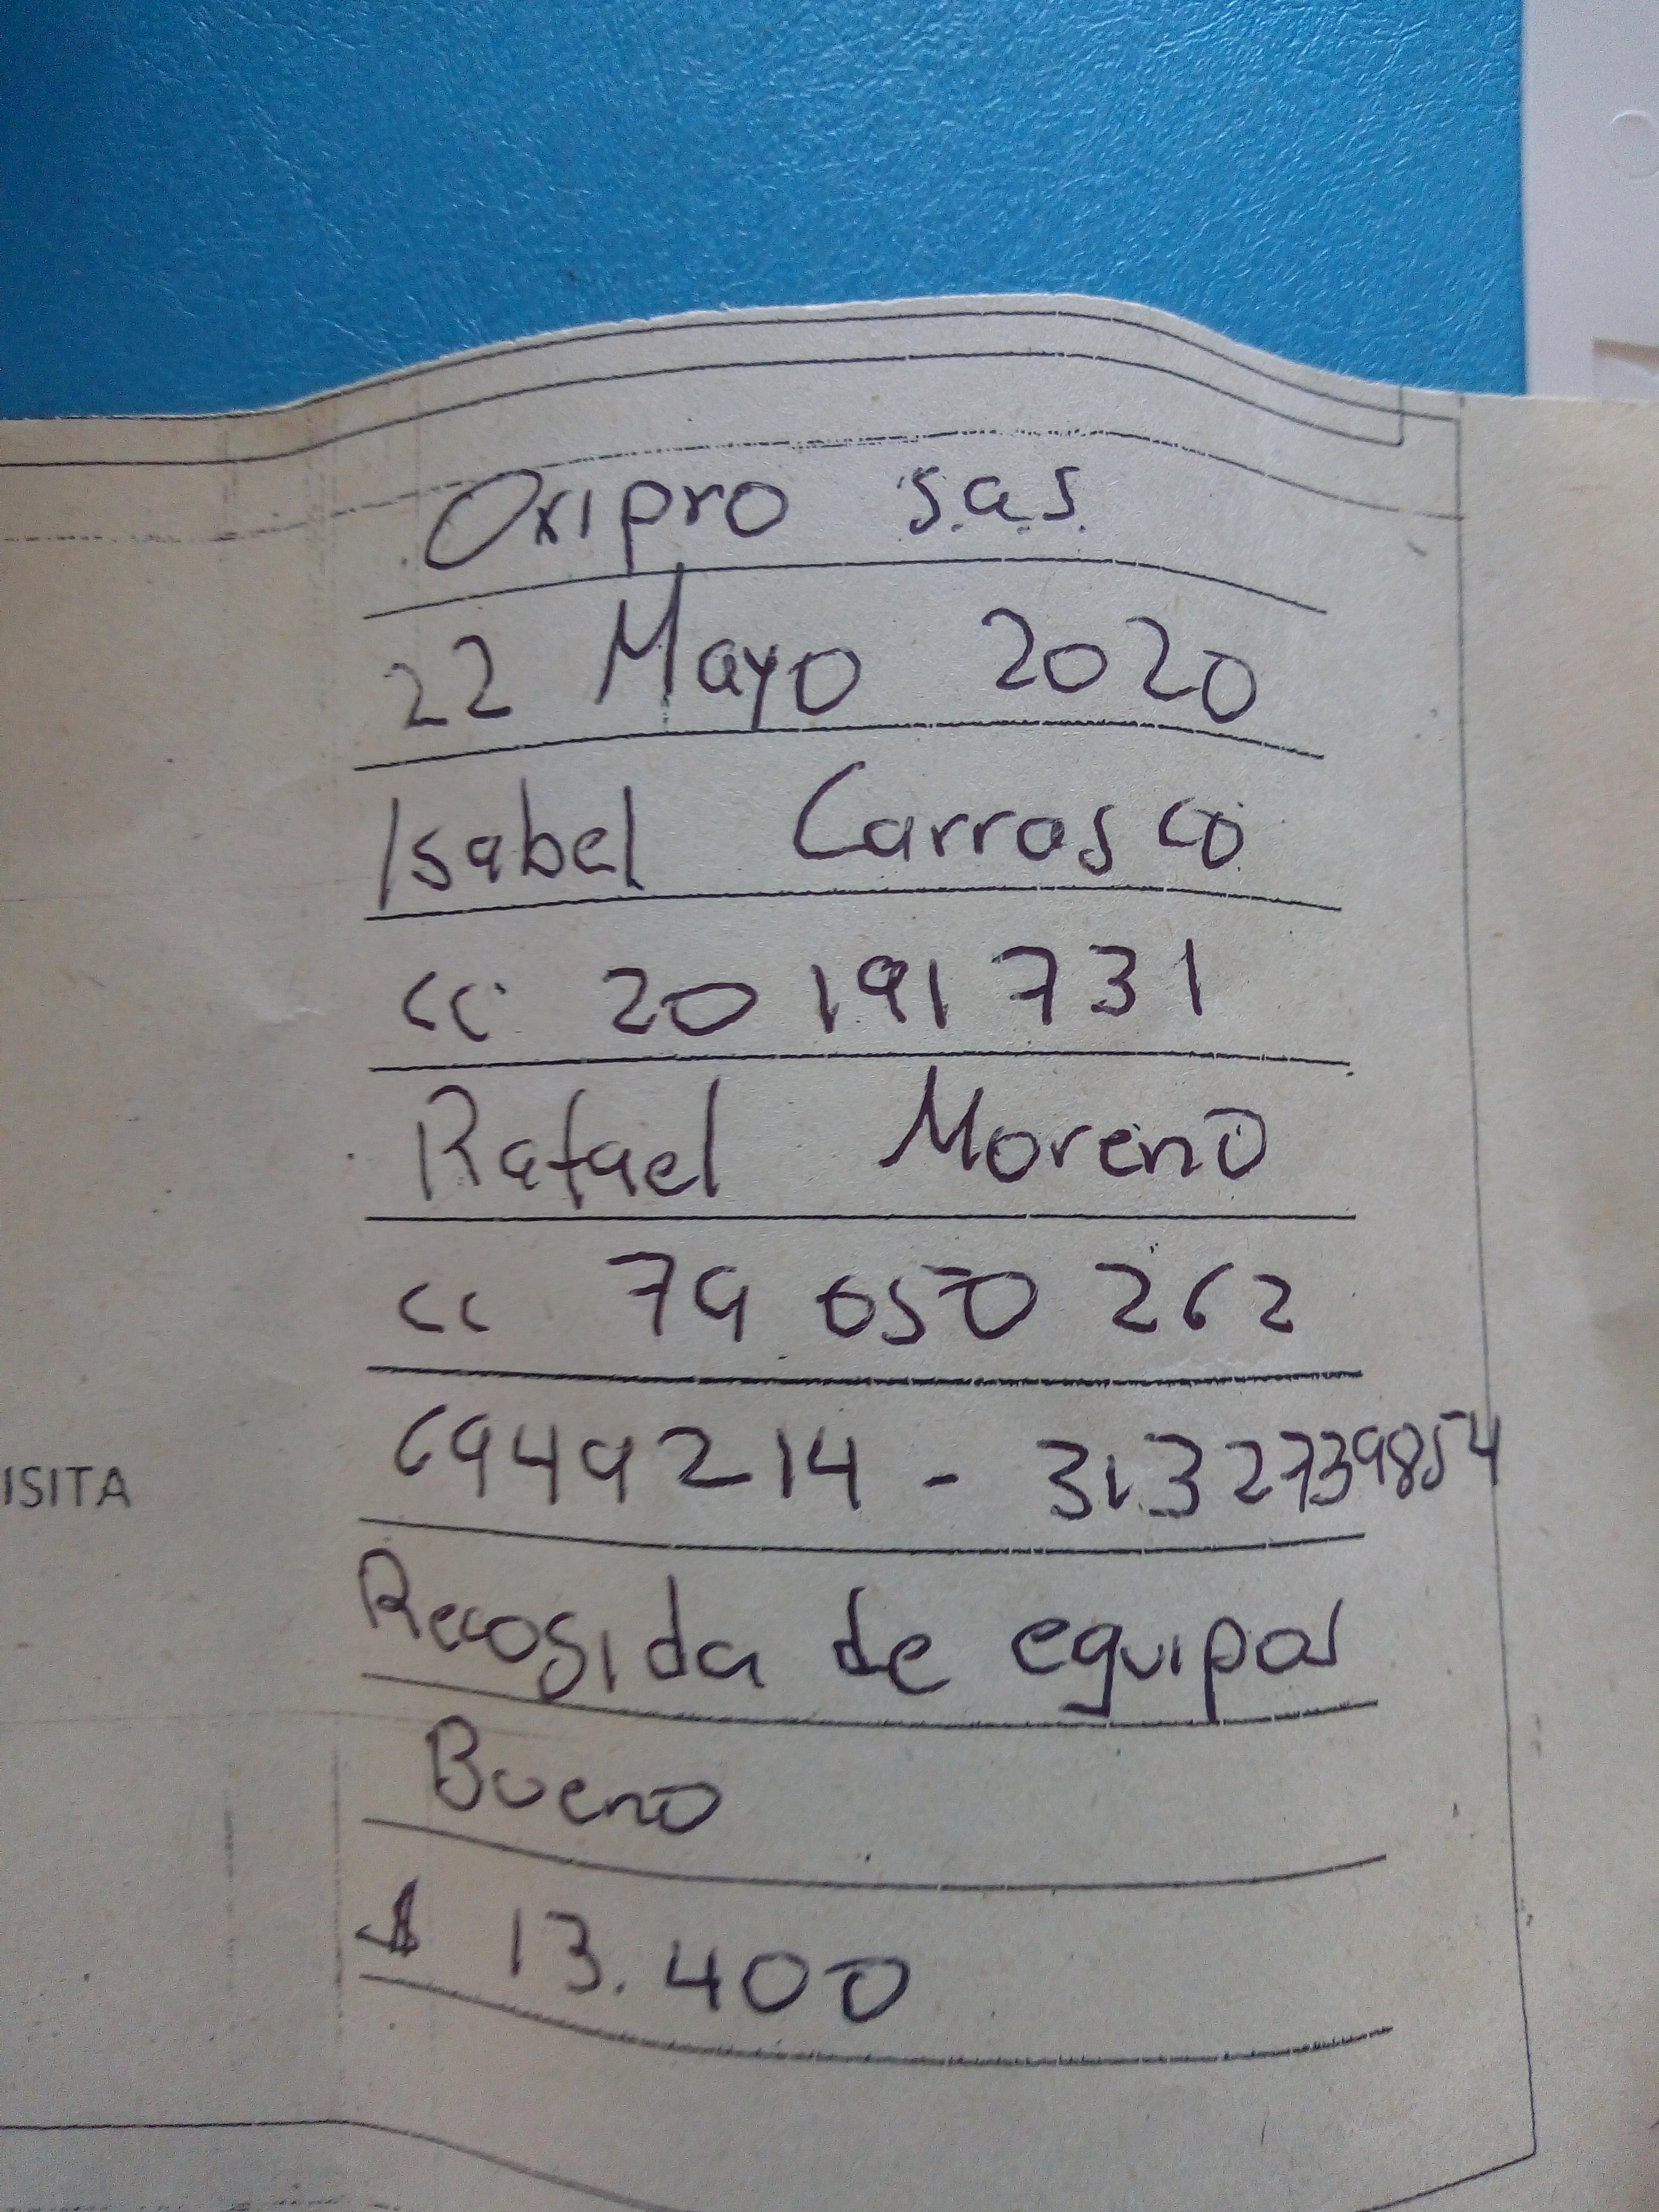 Oxipro s.a.s.
22 Mayo 2020
Isabel Carrasco
cc 20 191 731
Rafael Moreno
cc 79 050 262
6949214 - 3132739854
ISITA
Recogida de equipos
Bueno
$ 13.400